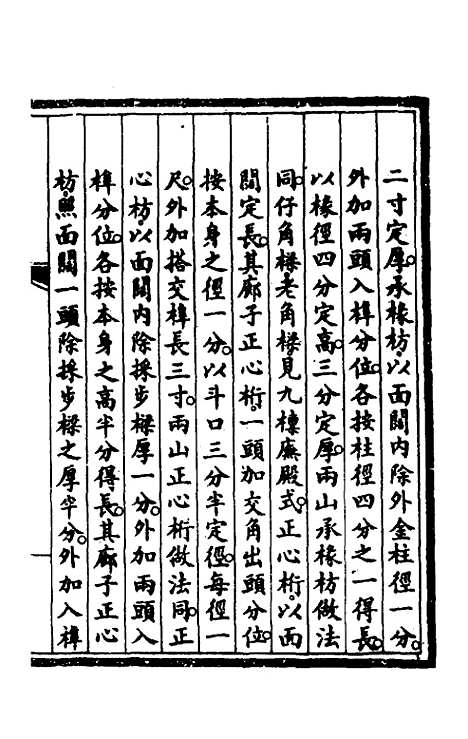 二寸定厚。承椽枋。以面闊內除外金柱徑一分。
外加兩頭入榫分位。各按柱徑四分之一得長。
以椽徑四分定高。三分定厚。兩山承椽枋做法
同。仔角樑老角樑。見九檩廡殿式。正心桁。以面
闊定長。其廊子正心桁。一頭加交角出頭分位。
按本身之徑一分。以斗口三分半定徑。每徑一
尺。外加搭交榫長三寸。兩山正心桁做法同。正
心枋。以面闊內除採步樑厚一分。外加兩頭入
榫分位。各按本身之高半分得長。其廊子正心
枋。照面闊一頭除採步樑之厚半分。外加入榫